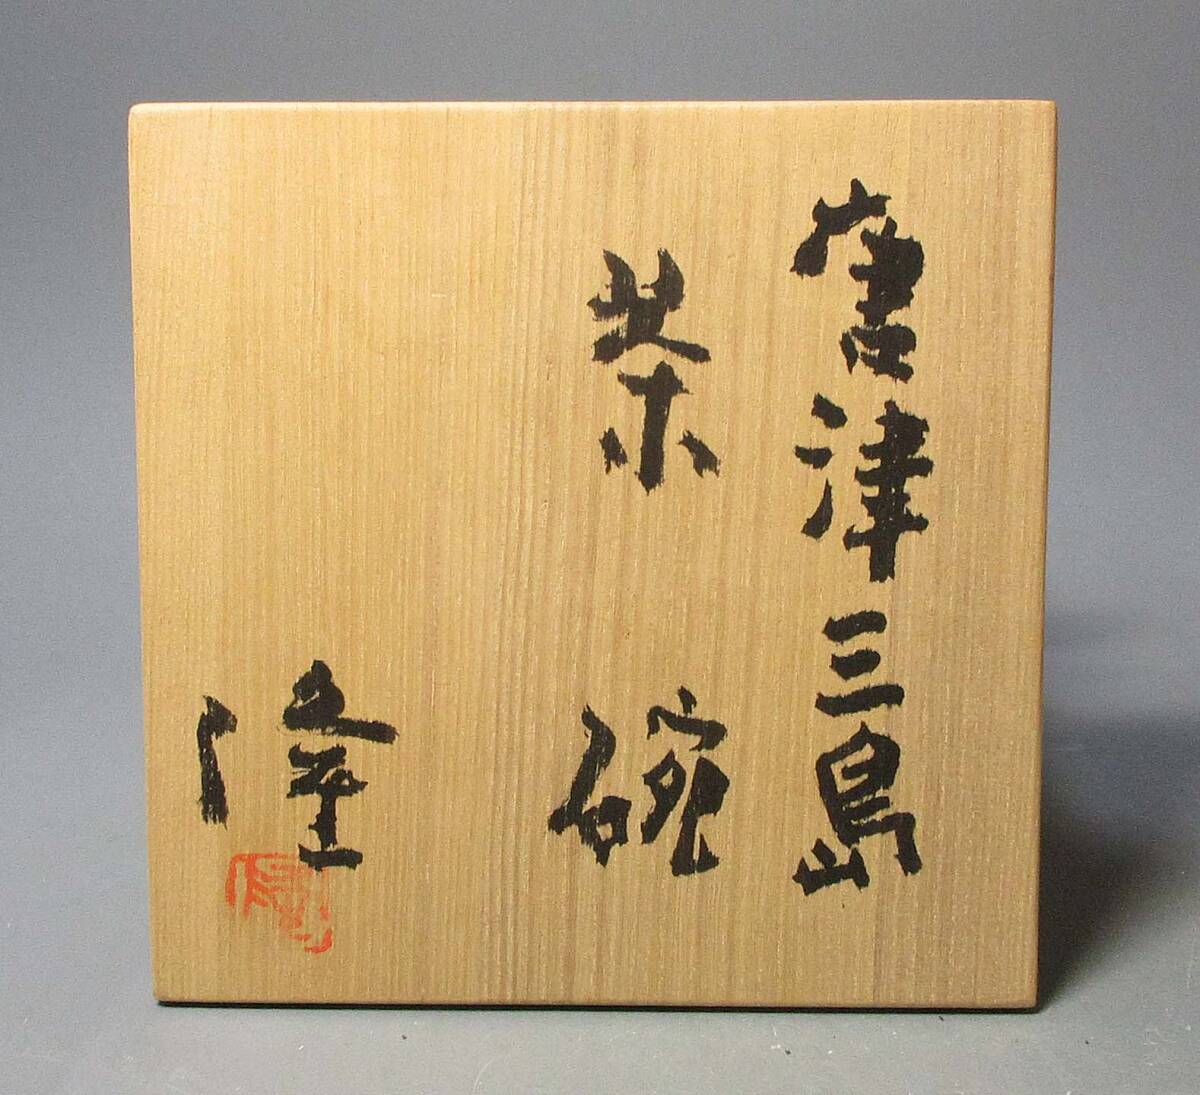 唐津三島
茶碗
隆